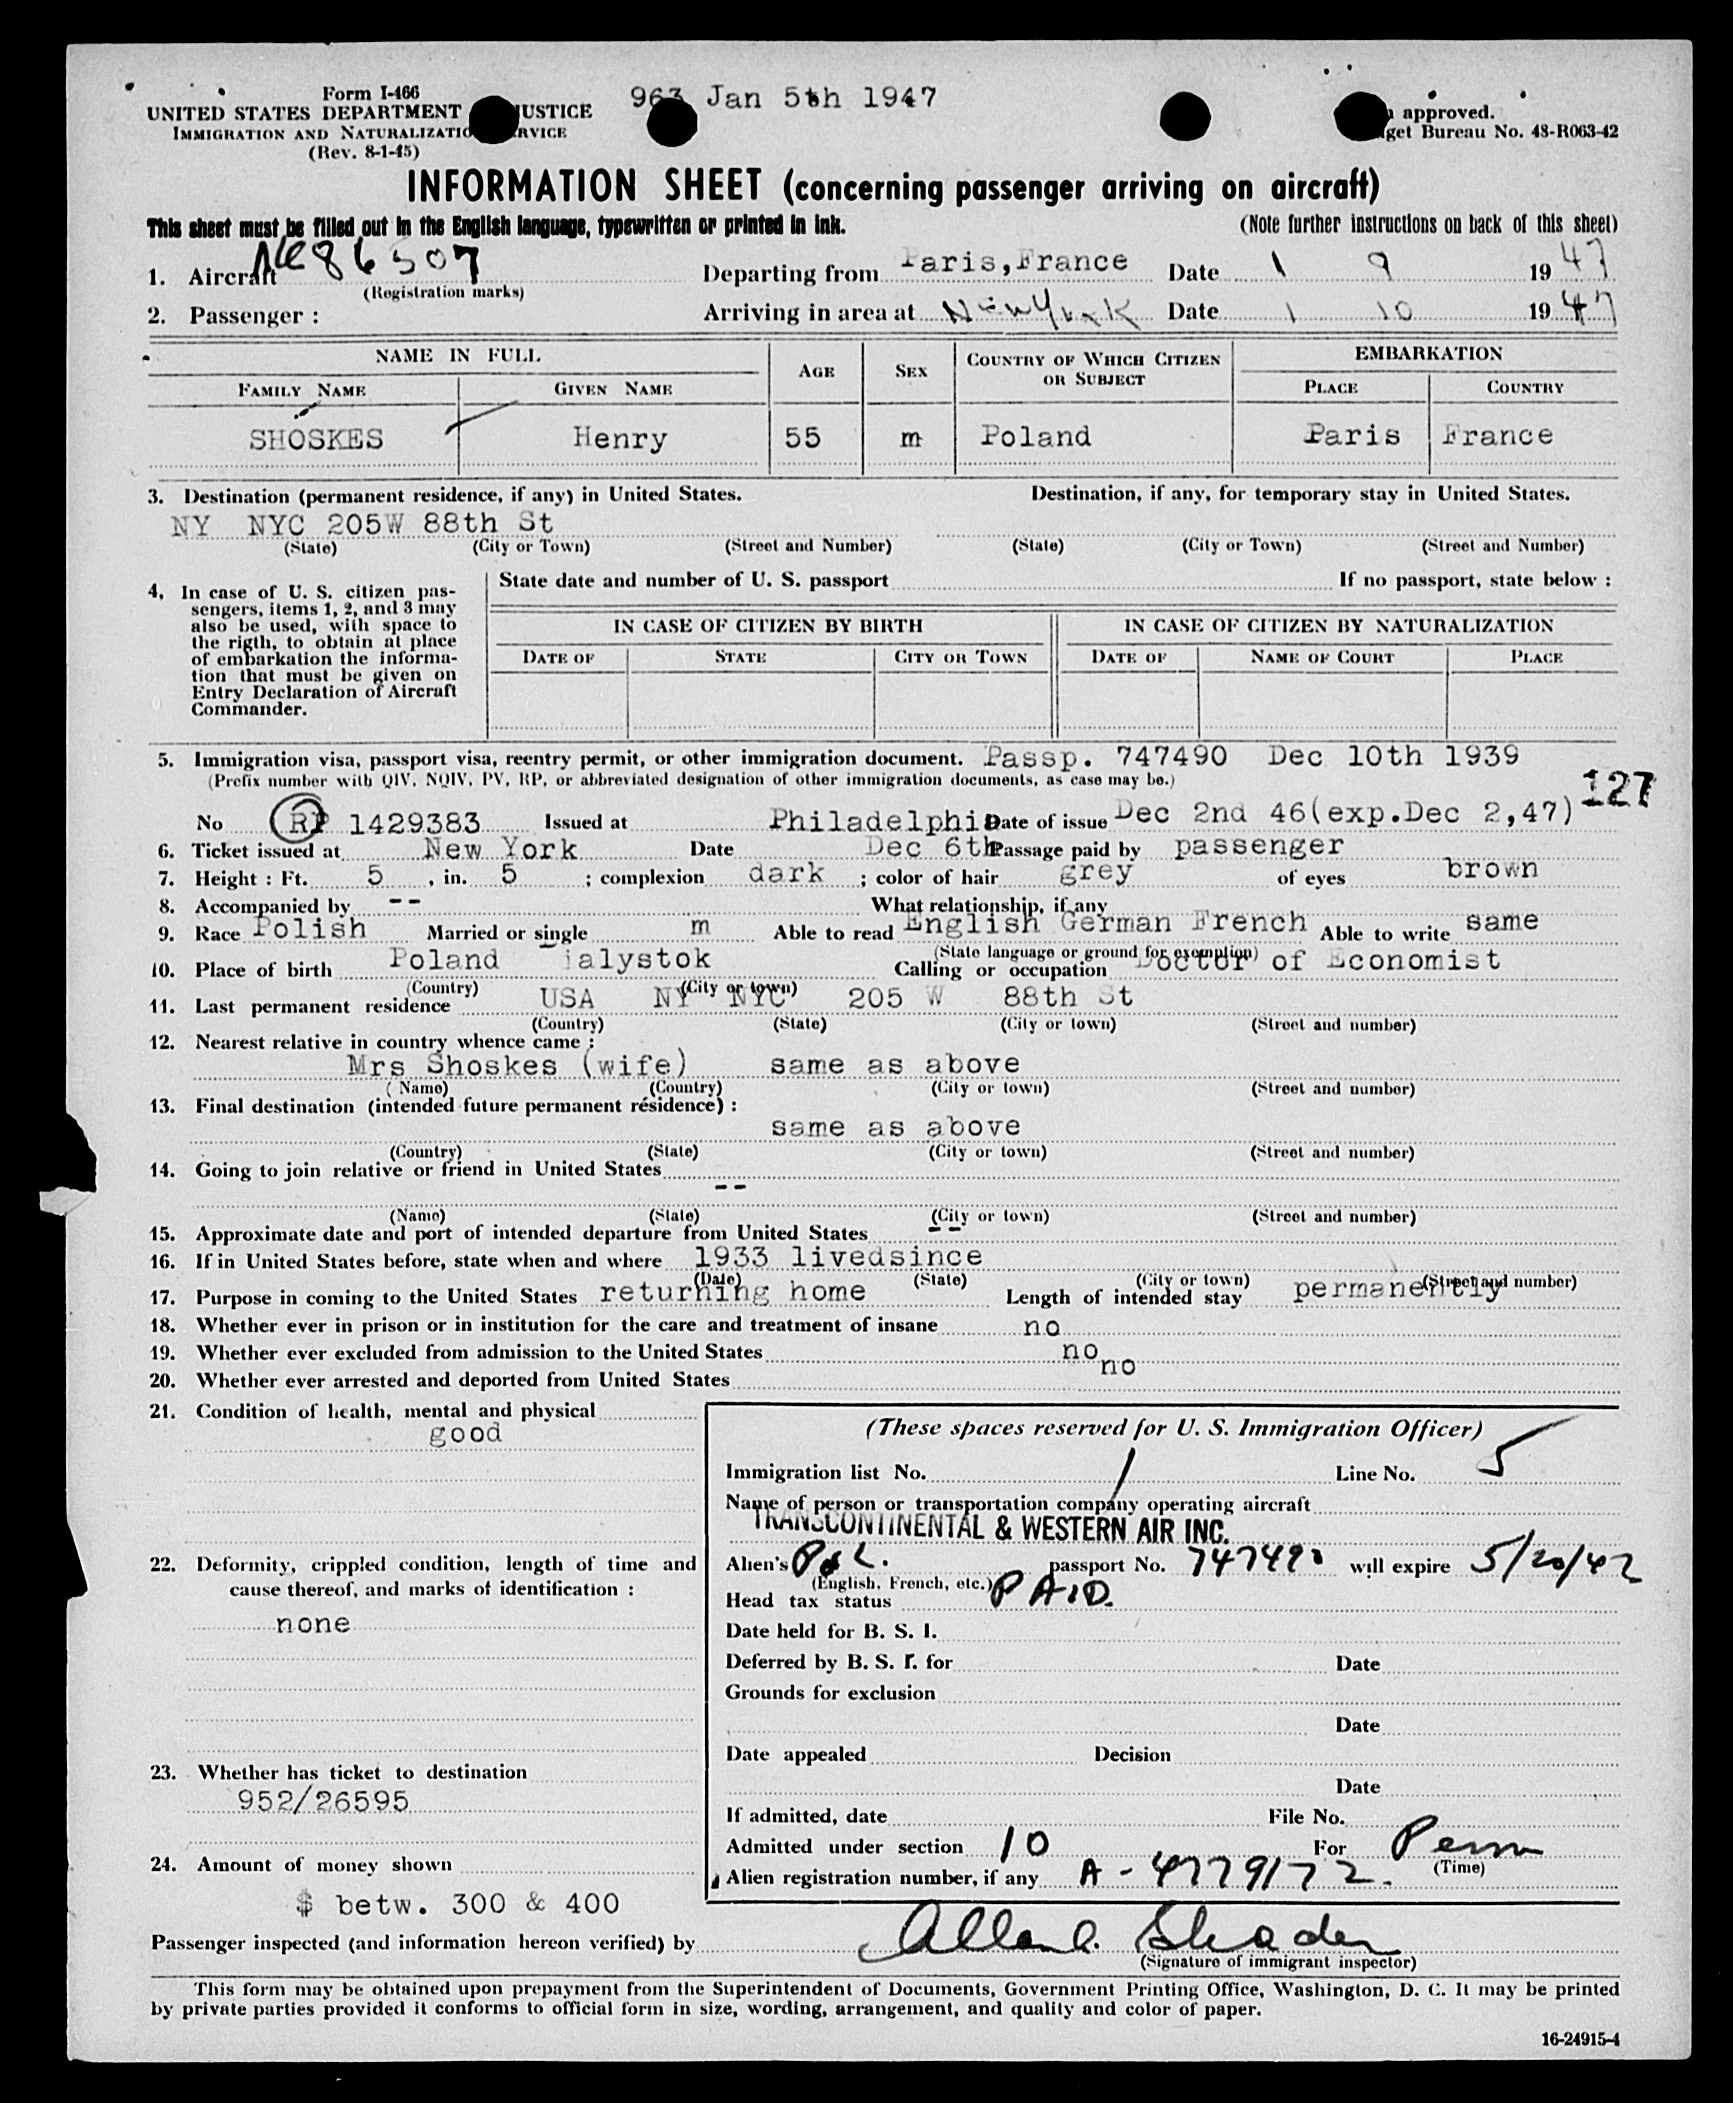 Form I-466
UNITED STATES DEPARTMENT JUSTICE
IMMIGRATION AND NATURALIZATION SERVICE
(Rev. 8-1-45)
963 Jan 5th 1947
approved.
get Bureau No. 43-R063-42
INFORMATION SHEET (concerning passenger arriving on aircraft)
This sheet must be filled out in the English language, typewritten or printed in ink. (Note further instructions on back of this sheet)
1. Aircraft NC86507 Departing from Paris, France Date 1 9 1947
(Registration marks)
2. Passenger : Arriving in area at New York Date 1 10 1947
NAME IN FULL AGE SEX COUNTRY OF WHICH CITIZEN OR SUBJECT EMBARKATION
FAMILY NAME GIVEN NAME PLACE COUNTRY
SHOSKES Henry 55 m Poland Paris France
3. Destination (permanent residence, if any) in United States. Destination, if any, for temporary stay in United States.
NY NYC 205W 88th St
(State) (City or Town) (Street and Number) (State) (City or Town) (Street and Number)
4. In case of U. S. citizen pas-
sengers, items 1, 2, and 3 may
also be used, with space to
the rigth, to obtain at place
of embarkation the informa-
tion that must be given on
Entry Declaration of Aircraft
Commander.
State date and number of U. S. passport If no passport, state below :
IN CASE OF CITIZEN BY BIRTH IN CASE OF CITIZEN BY NATURALIZATION
DATE OF STATE CITY OR TOWN DATE OF NAME OF COURT PLACE
5. Immigration visa, passport visa, reentry permit, or other immigration document. Passp. 747490 Dec 10th 1939
(Prefix number with QIV, NQIV, PV, RP, or abbreviated designation of other immigration documents, as case may be.)
127
No RP 1429383 Issued at Philadelphia Date of issue Dec 2nd 46(exp.Dec 2,47)
6. Ticket issued at New York Date Dec 6th Passage paid by passenger
7. Height : Ft. 5 , in. 5 ; complexion dark ; color of hair grey of eyes brown
8. Accompanied by -- What relationship, if any
9. Race Polish Married or single m Able to read English German French Able to write same
(State language or ground for exemption)
10. Place of birth Poland ialystok Calling or occupation Doctor of Economist
(Country) (City or town)
11. Last permanent residence USA NY NYC 205 W 88th St
(Country) (State) (City or town) (Street and number)
12. Nearest relative in country whence came :
Mrs Shoskes (wife) same as above
(Name) (Country) (City or town) (Street and number)
13. Final destination (intended future permanent résidence) :
same as above
(Country) (State) (City or town) (Street and number)
14. Going to join relative or friend in United States
--
(Name) (State) (City or town) (Street and number)
15. Approximate date and port of intended departure from United States --
16. If in United States before, state when and where 1933 livedsince
(Date) (State) (City or town) (Street and number)
17. Purpose in coming to the United States returning home Length of intended stay permanently
18. Whether ever in prison or in institution for the care and treatment of insane no
19. Whether ever excluded from admission to the United States no
20. Whether ever arrested and deported from United States no
21. Condition of health, mental and physical
good
22. Deformity, crippled condition, length of time and
cause thereof, and marks of identification :
none
23. Whether has ticket to destination
952/26595
24. Amount of money shown
$ betw. 300 & 400
(These spaces reserved for U. S. Immigration Officer)
Immigration list No. 1 Line No. 5
Name of person or transportation company operating aircraft
TRANSCONTINENTAL & WESTERN AIR INC.
Alien's Pol. passport No. 747490 will expire 5/20/42
(English, French, etc.)
Head tax status PAID.
Date held for B. S. I.
Deferred by B. S. I. for Date
Grounds for exclusion
Date
Date appealed Decision
Date
If admitted, date File No.
Admitted under section 10 For Perm
(Time)
Alien registration number, if any A-4779172.
Passenger inspected (and information hereon verified) by Allan A. Shader
(Signature of immigrant inspector)
This form may be obtained upon prepayment from the Superintendent of Documents, Government Printing Office, Washington, D. C. It may be printed
by private parties provided it conforms to official form in size, wording, arrangement, and quality and color of paper.
16-24915-4